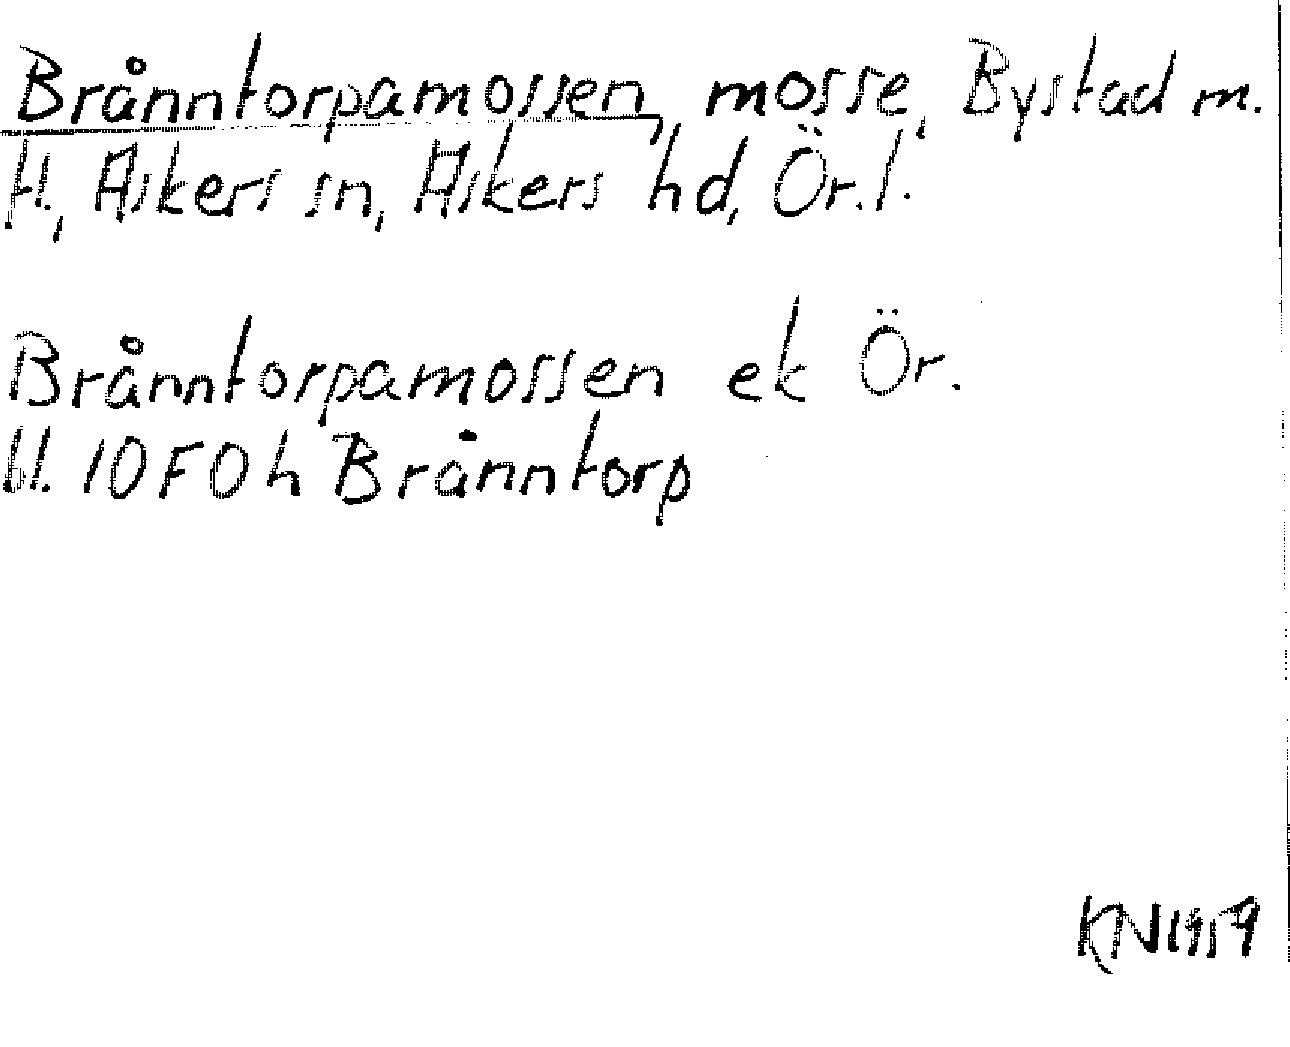 Brånntorpamossen, mosse, Bystad m.
fl., Askers sn, Askers hd, Ör.l.
Brånntorpamossen ek Ör.
bl. 10F0h Brånntorp
KN 1959